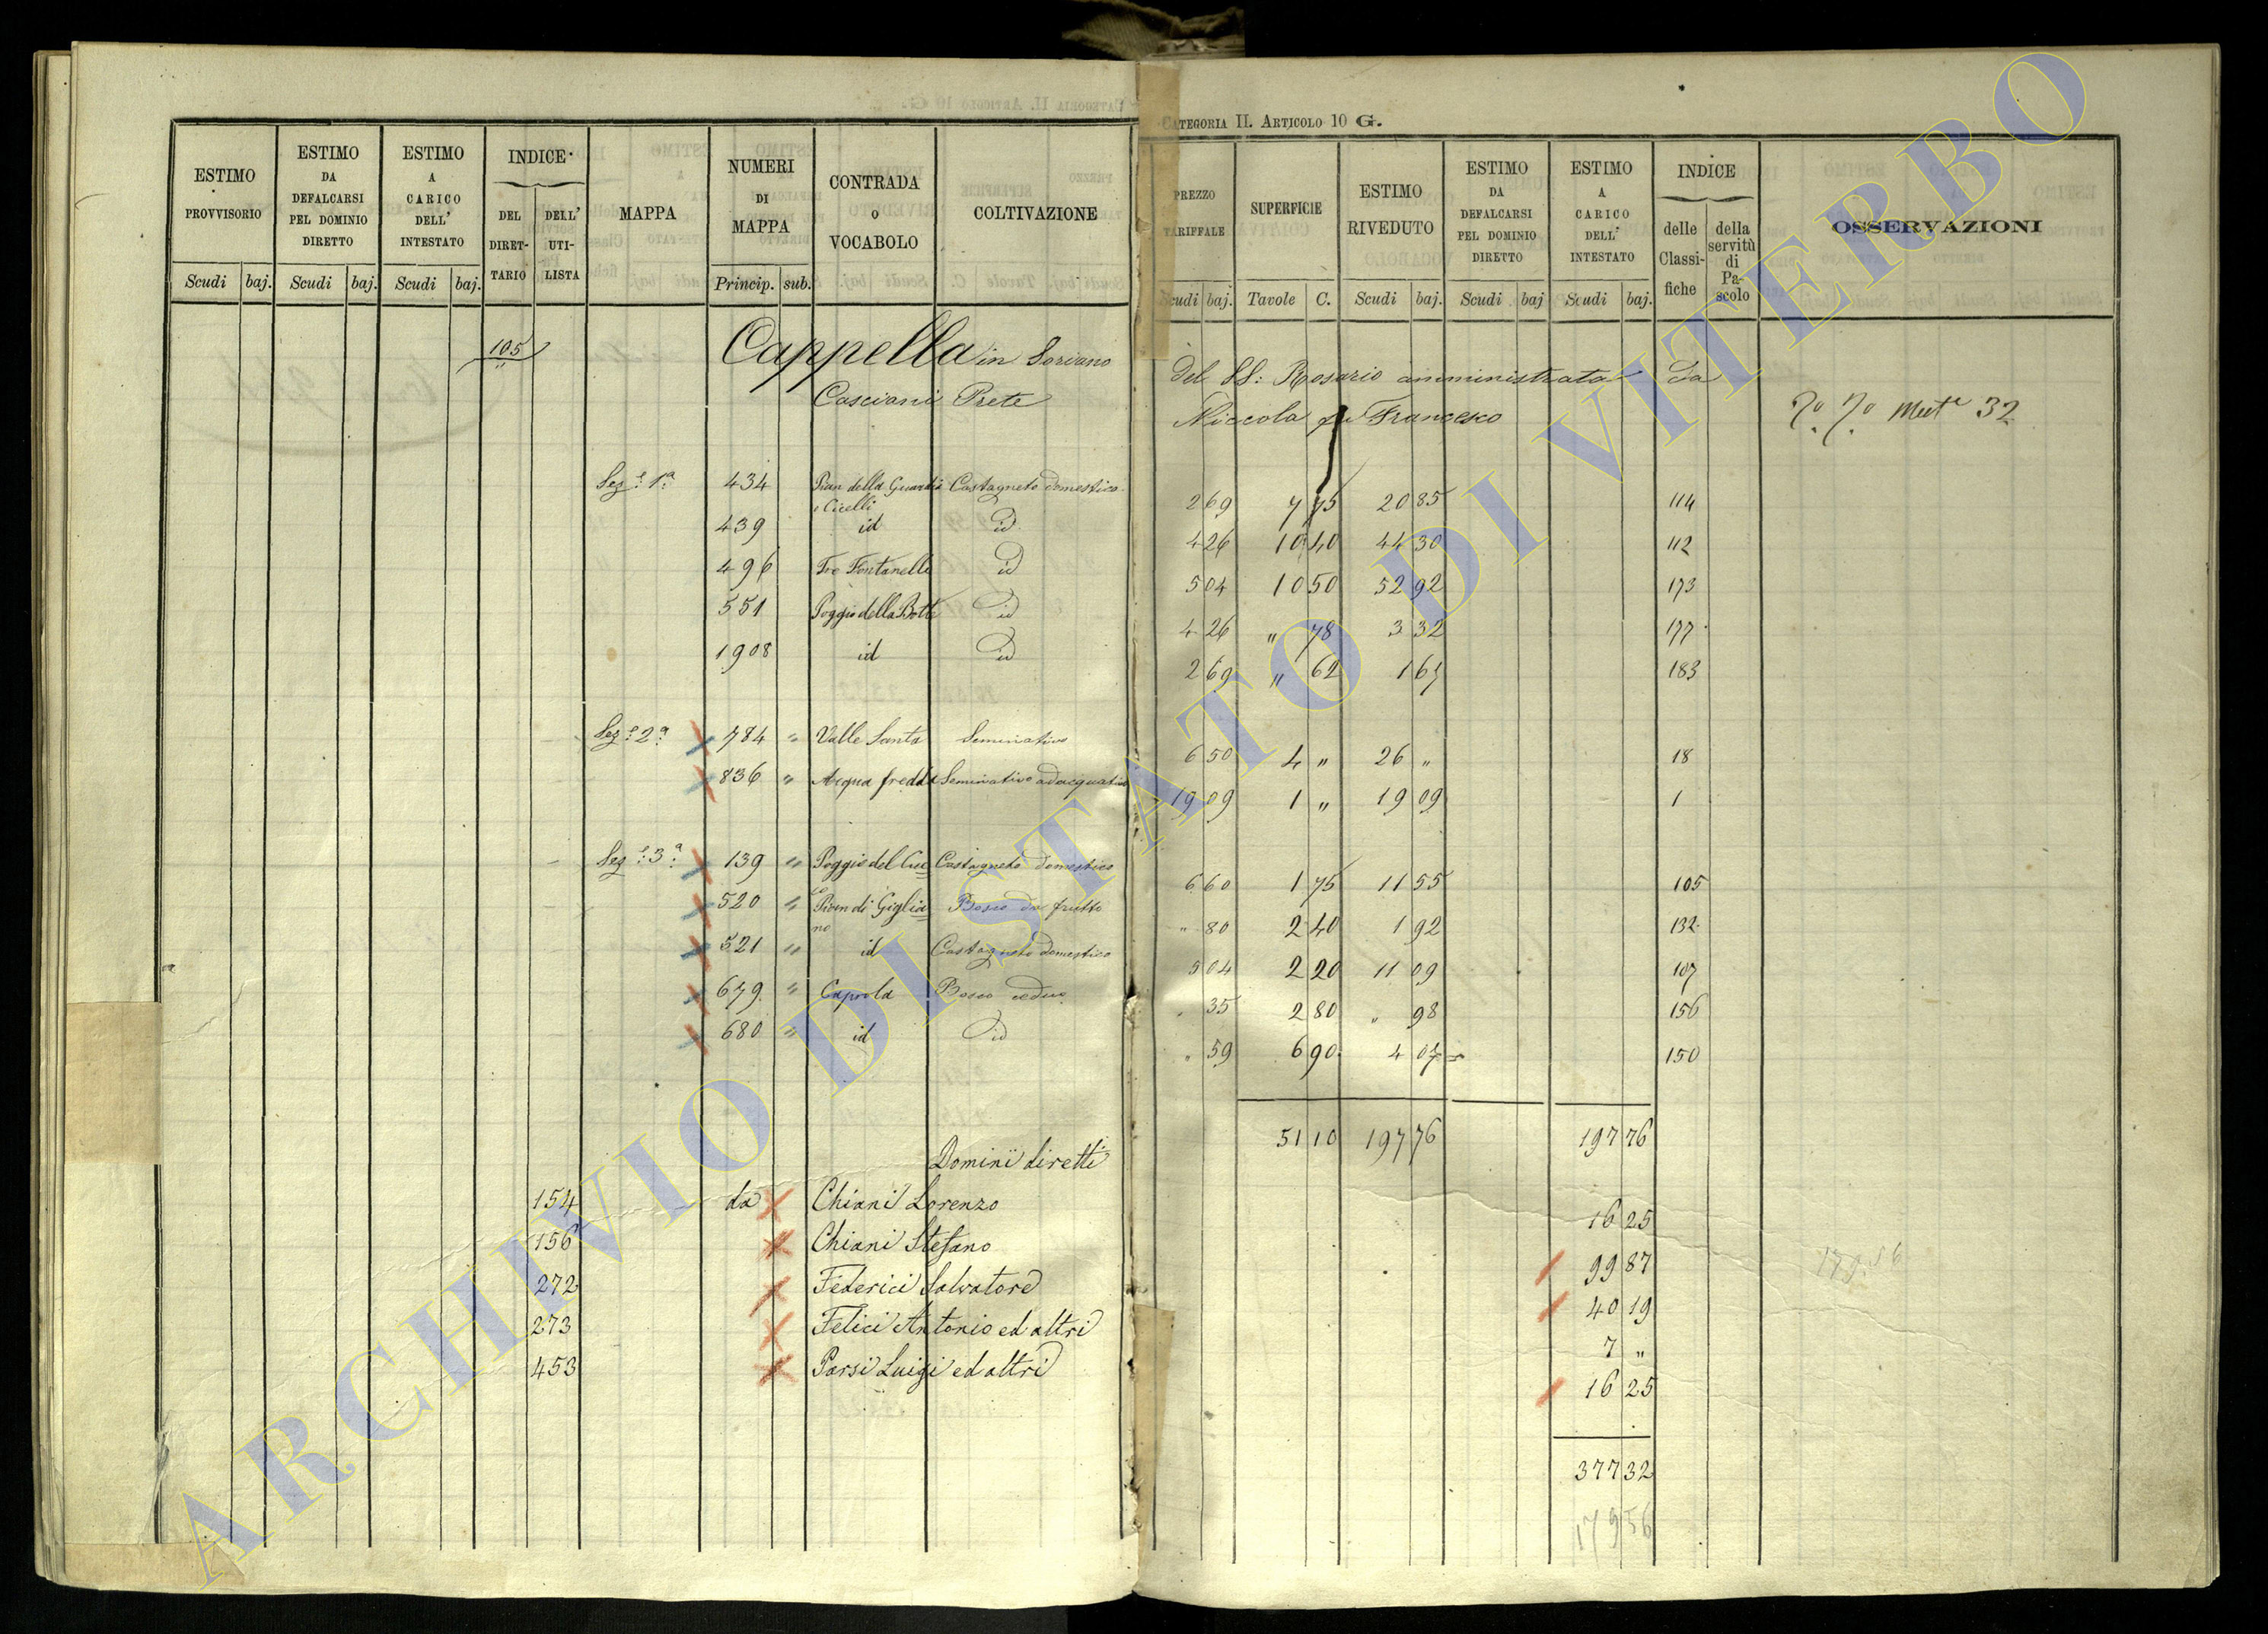 CATEGORIA II. ARTICOLO 10 G.
ESTIMO PROVVISORIO
Scudi baj.
ESTIMO DA DEFALCARSI PEL DOMINIO DIRETTO
Scudi baj.
ESTIMO A CARICO DELL' INTESTATO
Scudi baj.
INDICE
DEL DIRET-TARIO
DELL' UTI-LISTA
MAPPA
NUMERI DI MAPPA
Princip. sub.
CONTRADA o VOCABOLO
COLTIVAZIONE
PREZZO TARIFFALE
Scudi baj.
SUPERFICIE
Tavole C.
ESTIMO RIVEDUTO
Scudi baj.
ESTIMO DA DEFALCARSI PEL DOMINIO DIRETTO
Scudi baj
ESTIMO A CARICO DELL' INTESTATO
Scudi baj.
INDICE
delle Classi-fiche
della servitù di Pa-scolo
OSSERVAZIONI
105 Cappella in Soriano del SS: Rosario amministrata da
Casciani Prete Niccola qu Francesco
Mut 32
Sez:e 1a 434 Pian della Guardia Castagneto domestico 2 69 7 75 20 85 114
e Cicelli
439 id id 4 26 10 40 44 30 112
496 Tre Fontanelle id 5 04 10 50 52 92 173
551 Poggio della Botte id 4 26 " 78 3 32 177
1908 id id 2 69 " 62 1 67 183
Sez:e 2a 784 " Valle Santa Seminativo 6 50 4 " 26 " 18
836 " Acqua fredda Seminativo adacquativo 19 09 1 " 19 09 1
Sez:e 3a 139 " Poggio del Cuc= Castagneto domestico 6 60 1 75 11 55 105
520 " Pian di Giglia= Bosco da frutto " 80 2 40 1 92 132
no
521 " id Castagneto domestico 5 04 2 20 11 09 107
679 " Capola Bosco ceduo " 35 2 80 " 98 156
680 " id id " 59 6 90 4 07 150
51 10 197 76 197 76
Dominii diretti
154 da Chiani Lorenzo 16 25
156 Chiani Stefano 99 87
272 Federici Salvatore 40 19
273 Felici Antonio ed altri 7 "
453 Parsi Luigi ed altri 16 25
377 32
179 56
179 56
ARCHIVIO DI STATO DI VITERBO